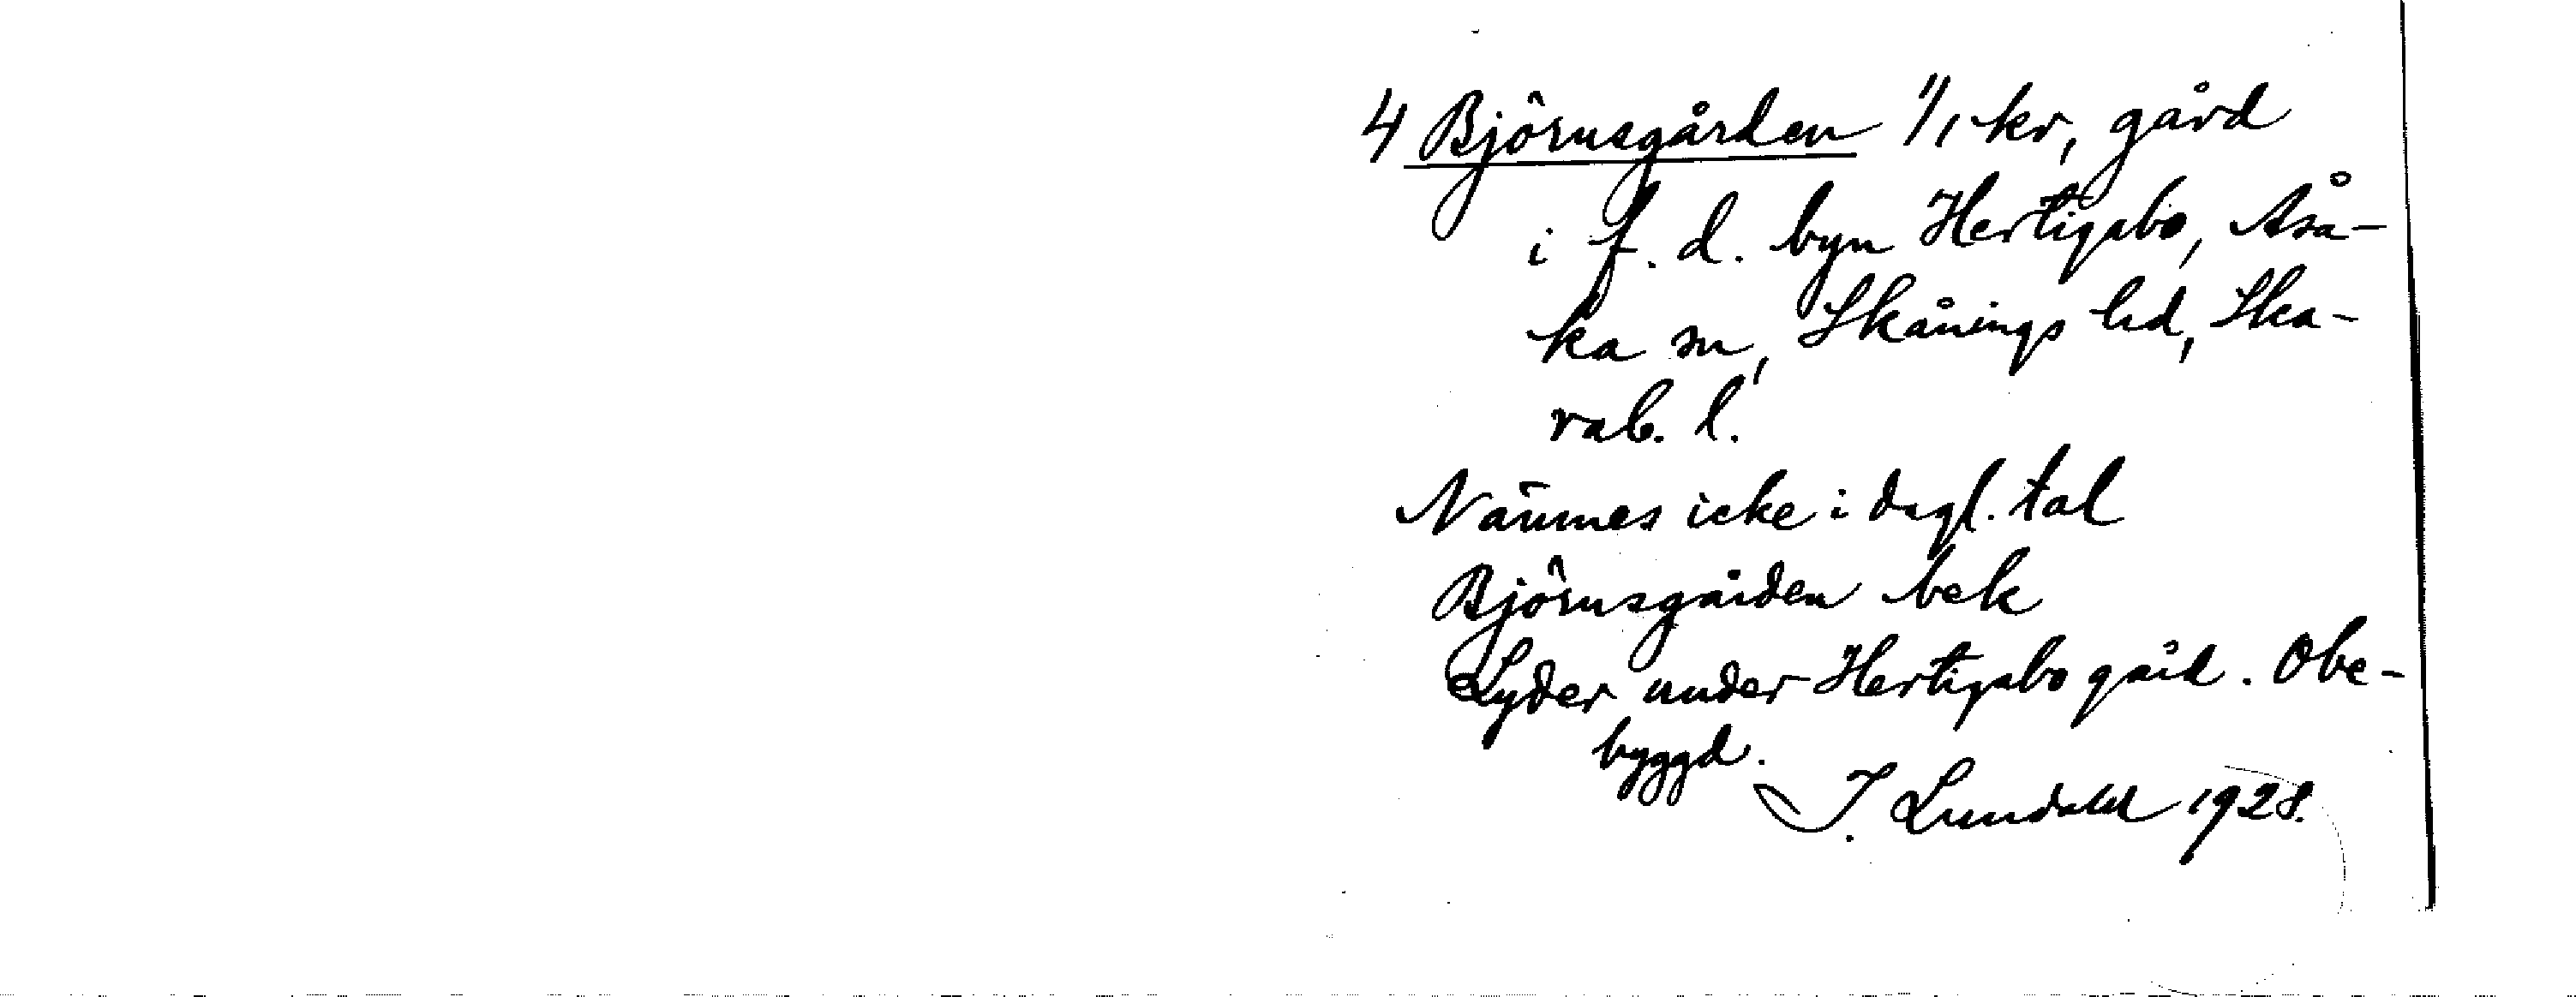 4 Björnsgården 1/1 kr, gård
i f. d. byn Hertigabo, Åsa-
ka sn, Skånings hd, Ska-
rab. l.
Nämnes icke i dagl. tal
Björnsgården bek
Lyder under Hertigabo gård. Obe-
byggd.
I. Lundahl 1928.